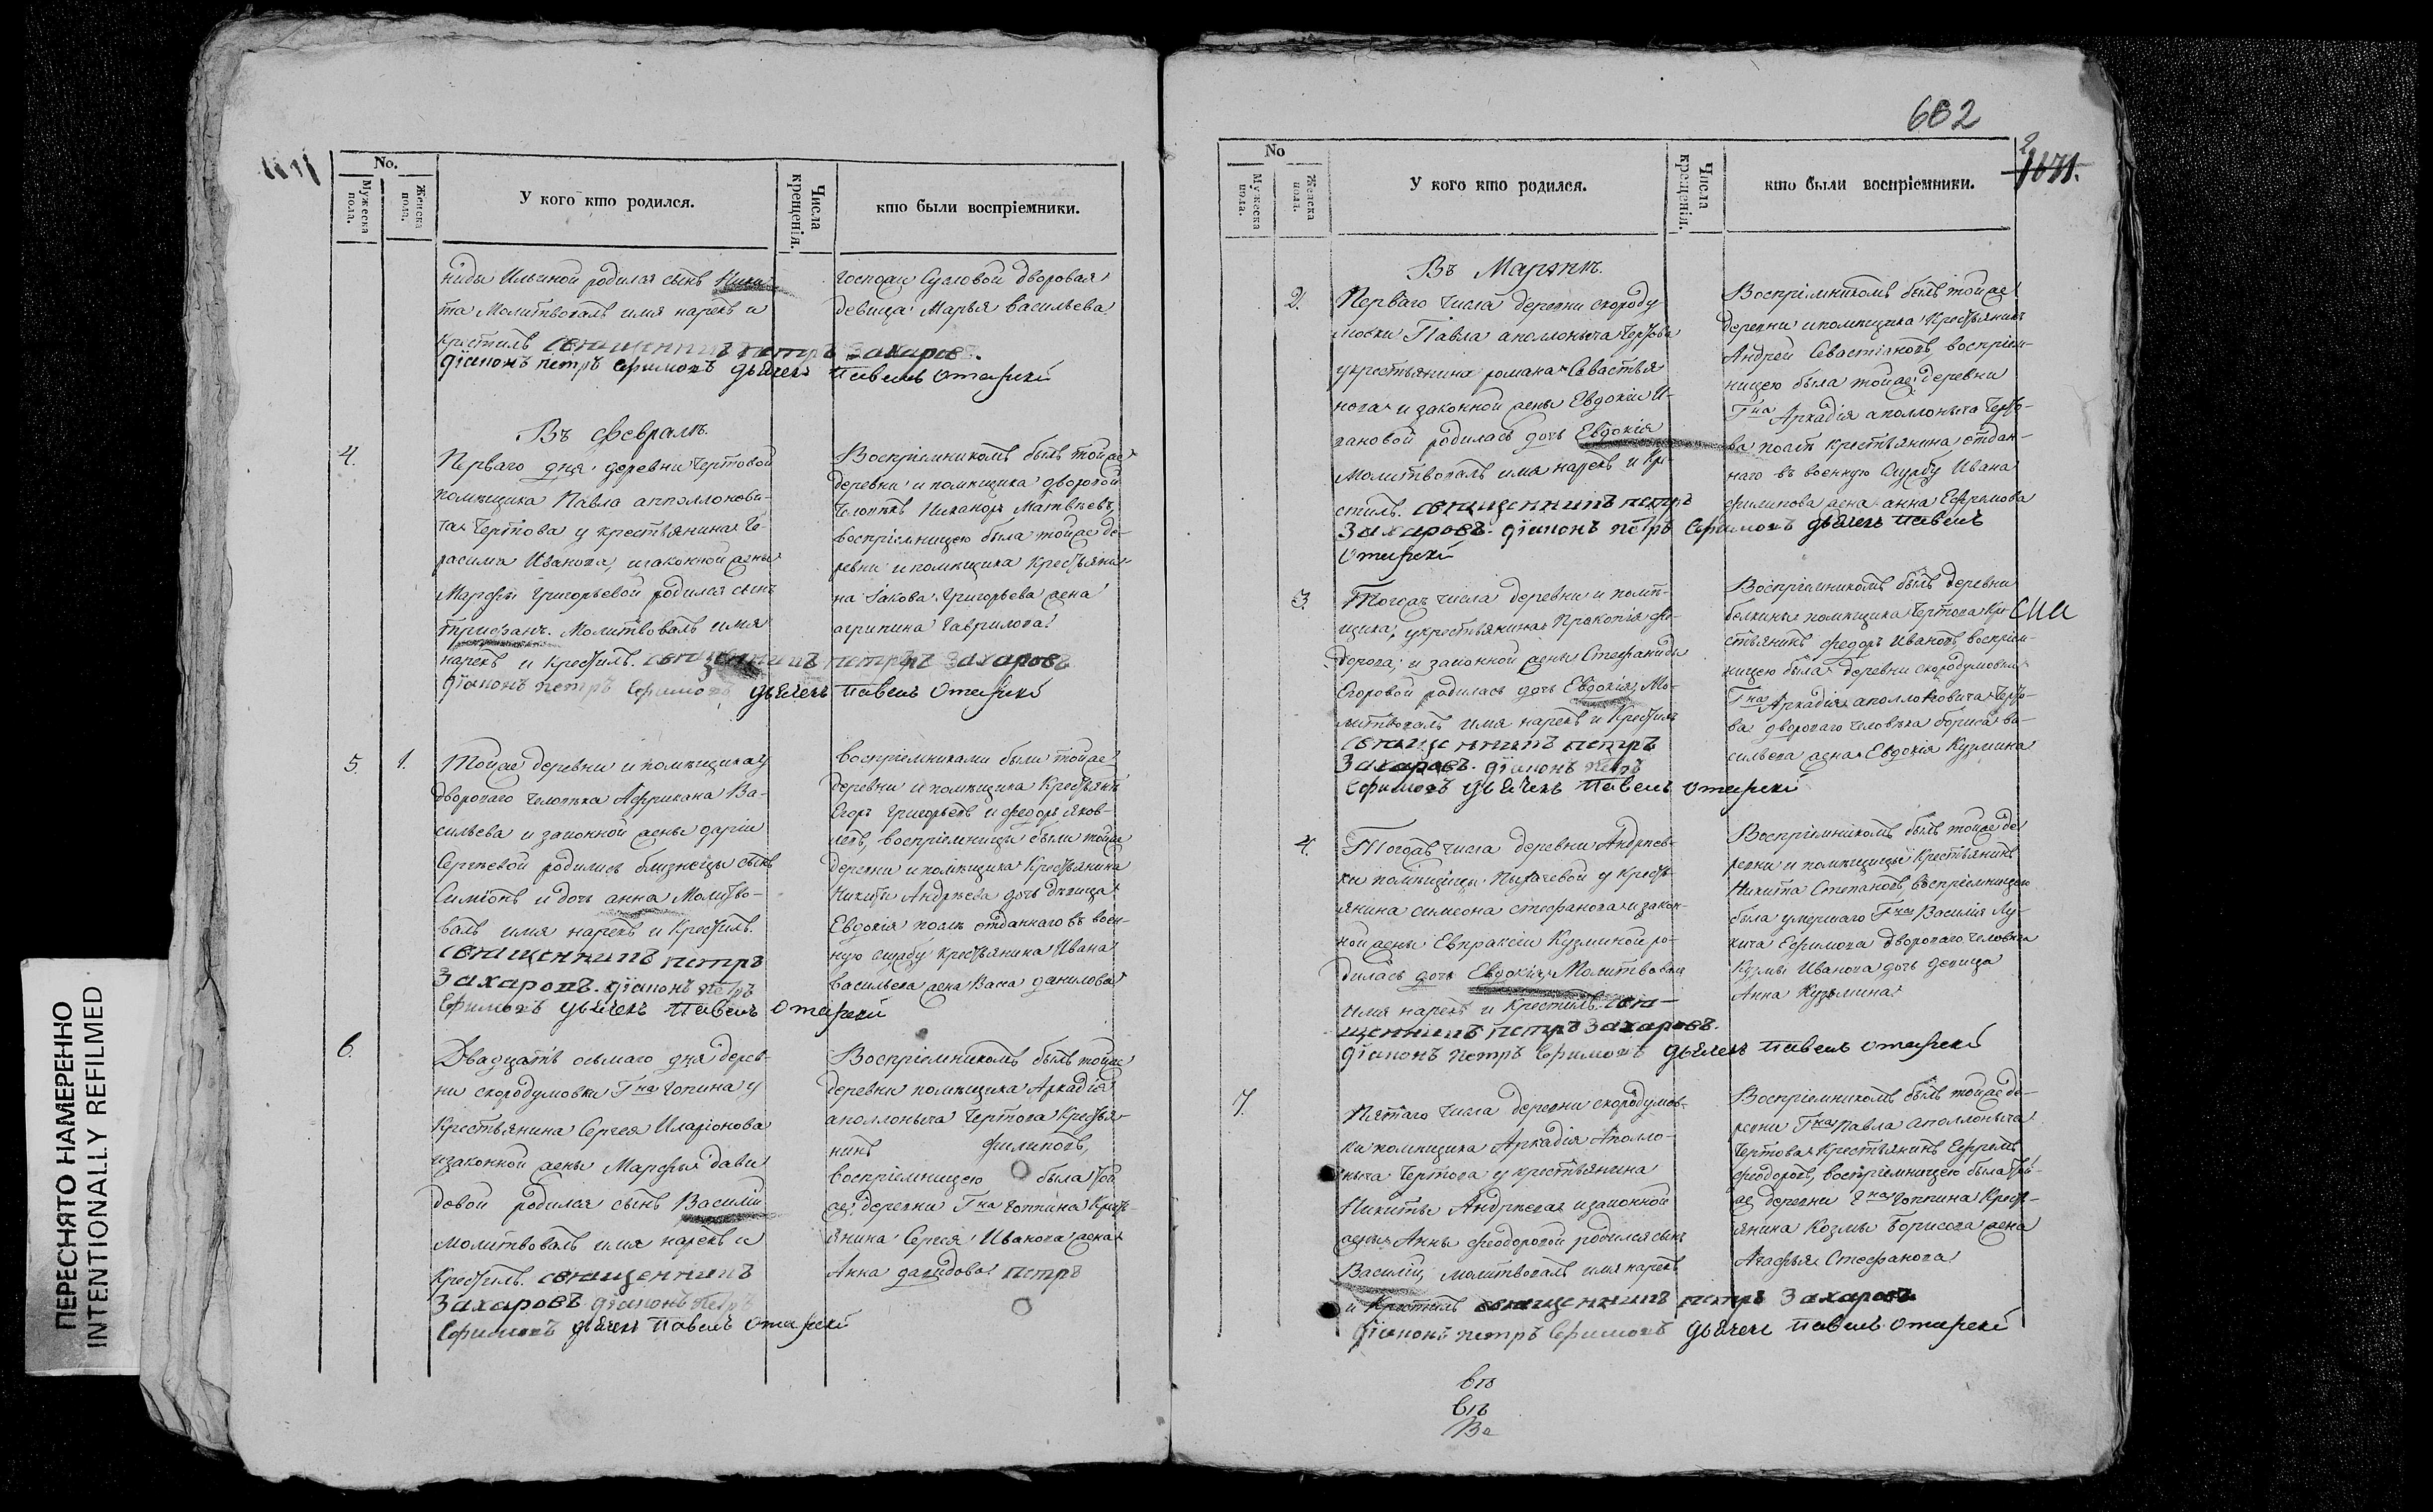 No.
Мужеска пола.
Женска пола.
У кого кто родился.
Числа крещенія.
кто были воспріемники.
ниды Ильиной родился сынъ Ники-
та Молитвовалъ имя нарекъ и
крестилъ священникъ петръ Захаровъ.
діаконъ петръ Ефимовъ дьячекъ Павелъ
госпожи Сусловой дворовая
девица Марья Васильева
Въ февралѣ.
4.
Перваго дня деревни Чертовой
помѣщика Павла апполонови-
ча Чертова у крестьянина Ге-
расима Иванова, изаконной жены
Марфы Григорьевой родился сынъ
Трифанъ. Молитвовалъ имя
нарекъ и крестилъ. священникъ петръ Захаровъ
діаконъ петръ Ефимовъ, дьячекъ Павелъ
Воспріемникомъ былъ тойже
деревни и помѣщика дворовой
человѣкъ Никаноръ Матвѣевъ,
воспріемницею была тойже де-
ревни и помѣщика крестьяни-
на Іакова Григорьева жена
агрипина Гаврилова
5.
1.
Тойже деревни и помѣщика у
двороваго человѣка Африкана Ва-
сильева и законной жены даріи
Сергѣевой родились близнецы сынъ
Симіонъ и дочь анна Молитво-
валъ имя нарекъ и крестилъ.
священникъ петръ
Захаровъ. діаконъ петръ
Ефимовъ дьячекъ Павелъ
воспріемниками были тойже
деревни и помѣщика крестьянѣ
Егоръ Григорьевъ и федоръ яков-
левъ, воспріемницы были тойже
деревни и помѣщика крестьянина
Никиты Андрѣева дочь дѣвица
Евдокія послѣ отданнаго въ воен-
ную службу крестьянина Ивана
Васильева жена Васа данилова
6.
Двадцать осьмаго дня дерев-
ни скородумовки Гна Чопина у
Крестьянина Сергея Иларіонова
изаконной жены Марфы дави
довой родился сынъ Василій
молитвовалъ имя нарекъ и
крестилъ. священникъ петръ
Захаровъ діаконъ петръ
Ефимовъ дьячекъ Павелъ
Воспріемникомъ былъ тойже
деревни помѣщика Аркадія
аполлоныча Чертова крестья-
нинъ филиповъ,
воспріемницею была той
же деревни Гна Чопина крест-
янина Сергея Иванова жена
Анна давидова
602
No
Мужеска пола.
Женска пола.
У кого кто родился.
Числа крещенія.
кто были воспріемники.
2
Въ Мартѣ.
2.
Перваго числа деревни скороду
мовки Павла аполлоныча Чертова
укрестьянина романа Севастья
нова и законной жены Евдокіи И-
вановой родилась дочь Евдокія
Молитвовалъ имя нарекъ и кре-
стилъ. священникъ петръ
Захаровъ. діаконъ петръ Ефимовъ дьячекъ Павелъ
Воспріемникомъ былъ тойже
деревни ипомѣщика крестьянинъ
Андрей Севастіановъ, воспріем-
ницею была тойже деревни
Гна Аркадія аполлоныча Черто-
ва послѣ крестьянина отдан-
наго въ военную службу Ивана
филипова жена анна Ефремова
3.
Тогожъ числа деревни и помѣ-
щика, укрестьянина Прокопія фе-
дорова, и законной жены Стефаниды
Егоровой родилась дочь Евдокія, Мо-
литвовалъ имя нарекъ и крестилъ
священникъ петръ
Захаровъ. діаконъ петръ
Ефимовъ дьячекъ Павелъ
Воспріемникомъ былъ деревни
белкины помѣщика Чертова кре-
стьянинъ федоръ Ивановъ, воспріем-
ницею была деревни скородумовки
Гна Аркадія аполлоновича Черто-
ва двороваго человѣка бориса ва-
сильева жена Евдокія Кузмина
4.
Тогожъ числа деревни Андреев-
ки помѣщицы Пыхачевой у крестья-
янина симеона стефанова изакон-
ной жены Евпраксіи Кузминой ро-
дилась дочь Евдокія Молитвовалъ
имя нарекъ и крестилъ. свя-
щенникъ петръ Захаровъ.
діаконъ петръ Ефимовъ дьячекъ Павелъ
Воспріемникомъ былъ тойже де
ревни и помѣщицы крестьянинъ
Никита Степановъ, воспріемницею
была умершаго Гна Василія Лу-
кича Ефимова двороваго человѣка
Кузмы Иванова дочь девица
Анна Кузьмина
7.
Пятаго числа деревни скородумов-
ки помѣщика Аркадія Аполло-
ныча Чертова у крестьянина
Никиты Андрѣева изаконной
жены Анны феодоровой родился сынъ
Василій, молитвовалъ имя нарекъ
и крестилъ священникъ петръ Захаровъ.
діаконъ петръ Ефимовъ дьячекъ Павелъ
Воспріемникомъ былъ тойже де-
ревни Гна Павла аполлоныча
Чертова крестьянинъ Ефремъ
феодоровъ, воспріемницею была той-
же деревни Гна Чоппина крест-
янина Козмы Борисова жена
Агафья Стефанова
ПЕРЕСНЯТО НАМЕРЕННО
INTENTIONALLY REFILMED